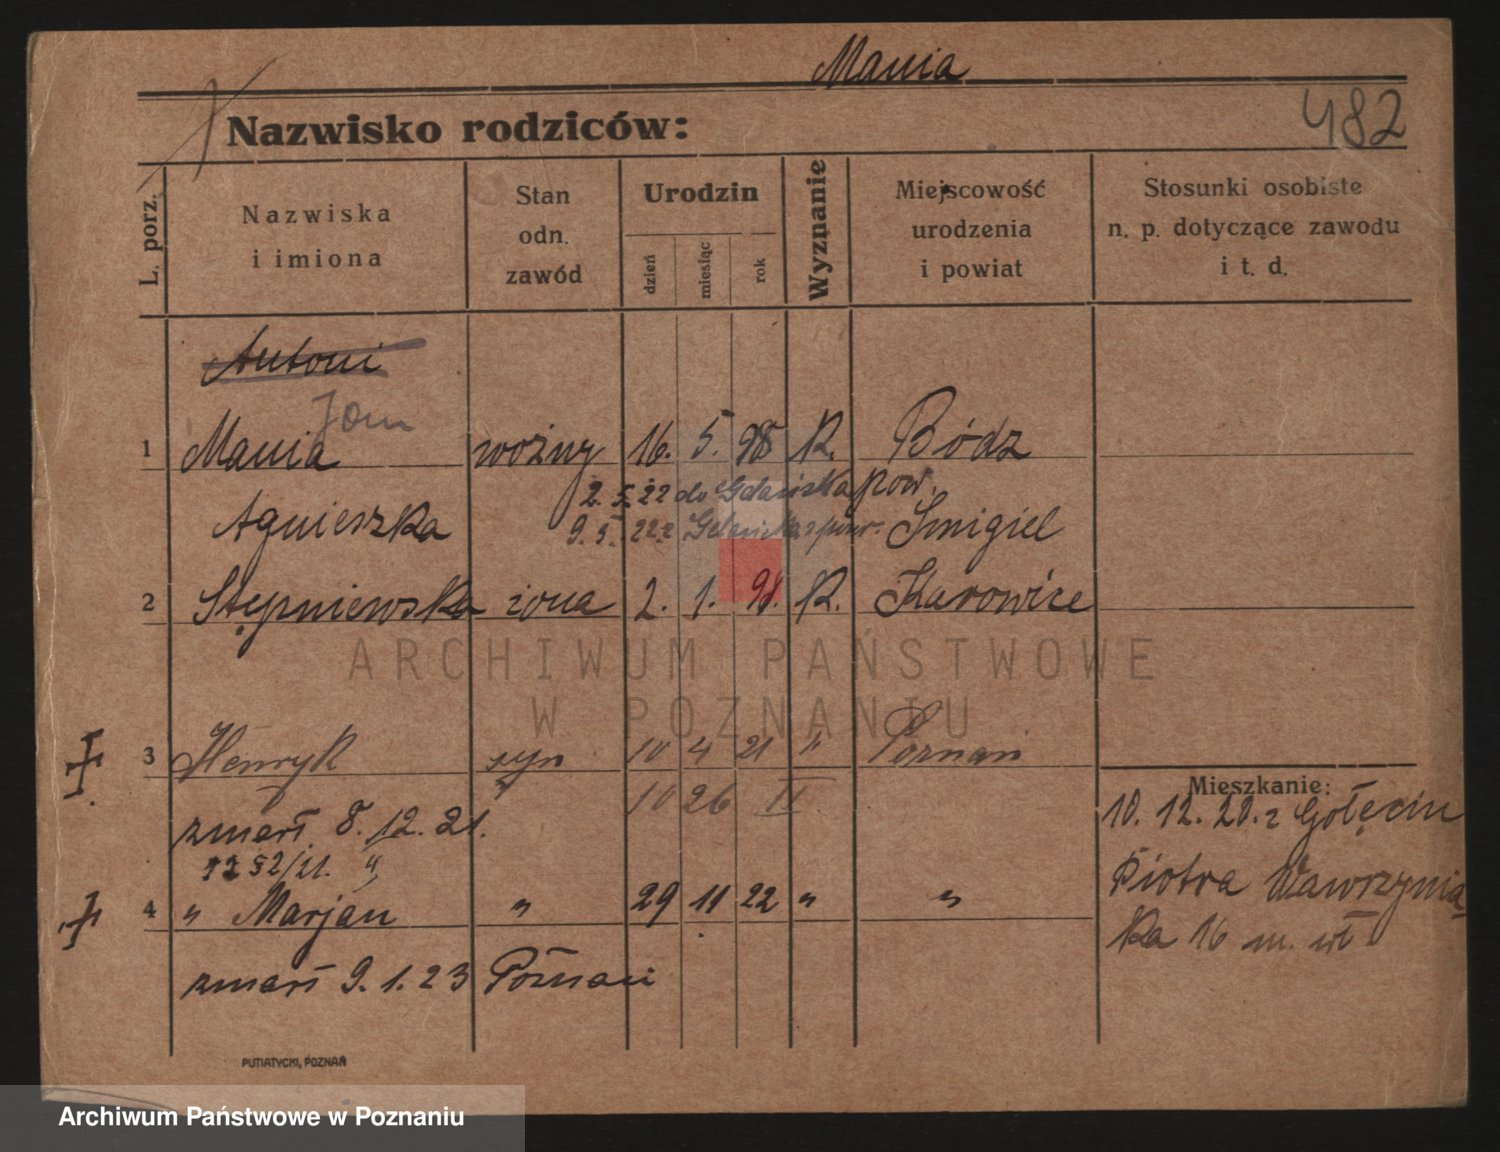 Mania
Nazwisko rodziców:
482
L. porz.
Nazwiska
i imiona
Stan
odn.
zawód
Urodzin
dzień
miesiąc
rok
Wyznanie
Miejscowość
urodzenia
i powiat
Stosunki osobiste
n. p. dotyczące zawodu
i t. d.
Antoni
Jan
1 Mania woźny 16. 5. 98 K. Bódz
2. 5. 22 do Gdańska pow.
Agnieszka 9. 5. 22 z Gdańska Śmigiel
2 Stępniewska żona 2. 1. 98. K. Karowice
ARCHIWUM PAŃSTWOWE
W POZNANIU
3 Henryk syn 10 4 21 " Poznan
Mieszkanie:
10 26 II
zmarł 8. 12. 21.
10. 12. 20. z Gołęcin
52/21. "
Piotra Wawrzynia
4 " Marjan " 29 11 22 " "
ka 16 m. wł
zmarł 9. 1. 23 Poznań
PUTIATYCKI, POZNAŃ
Archiwum Państwowe w Poznaniu